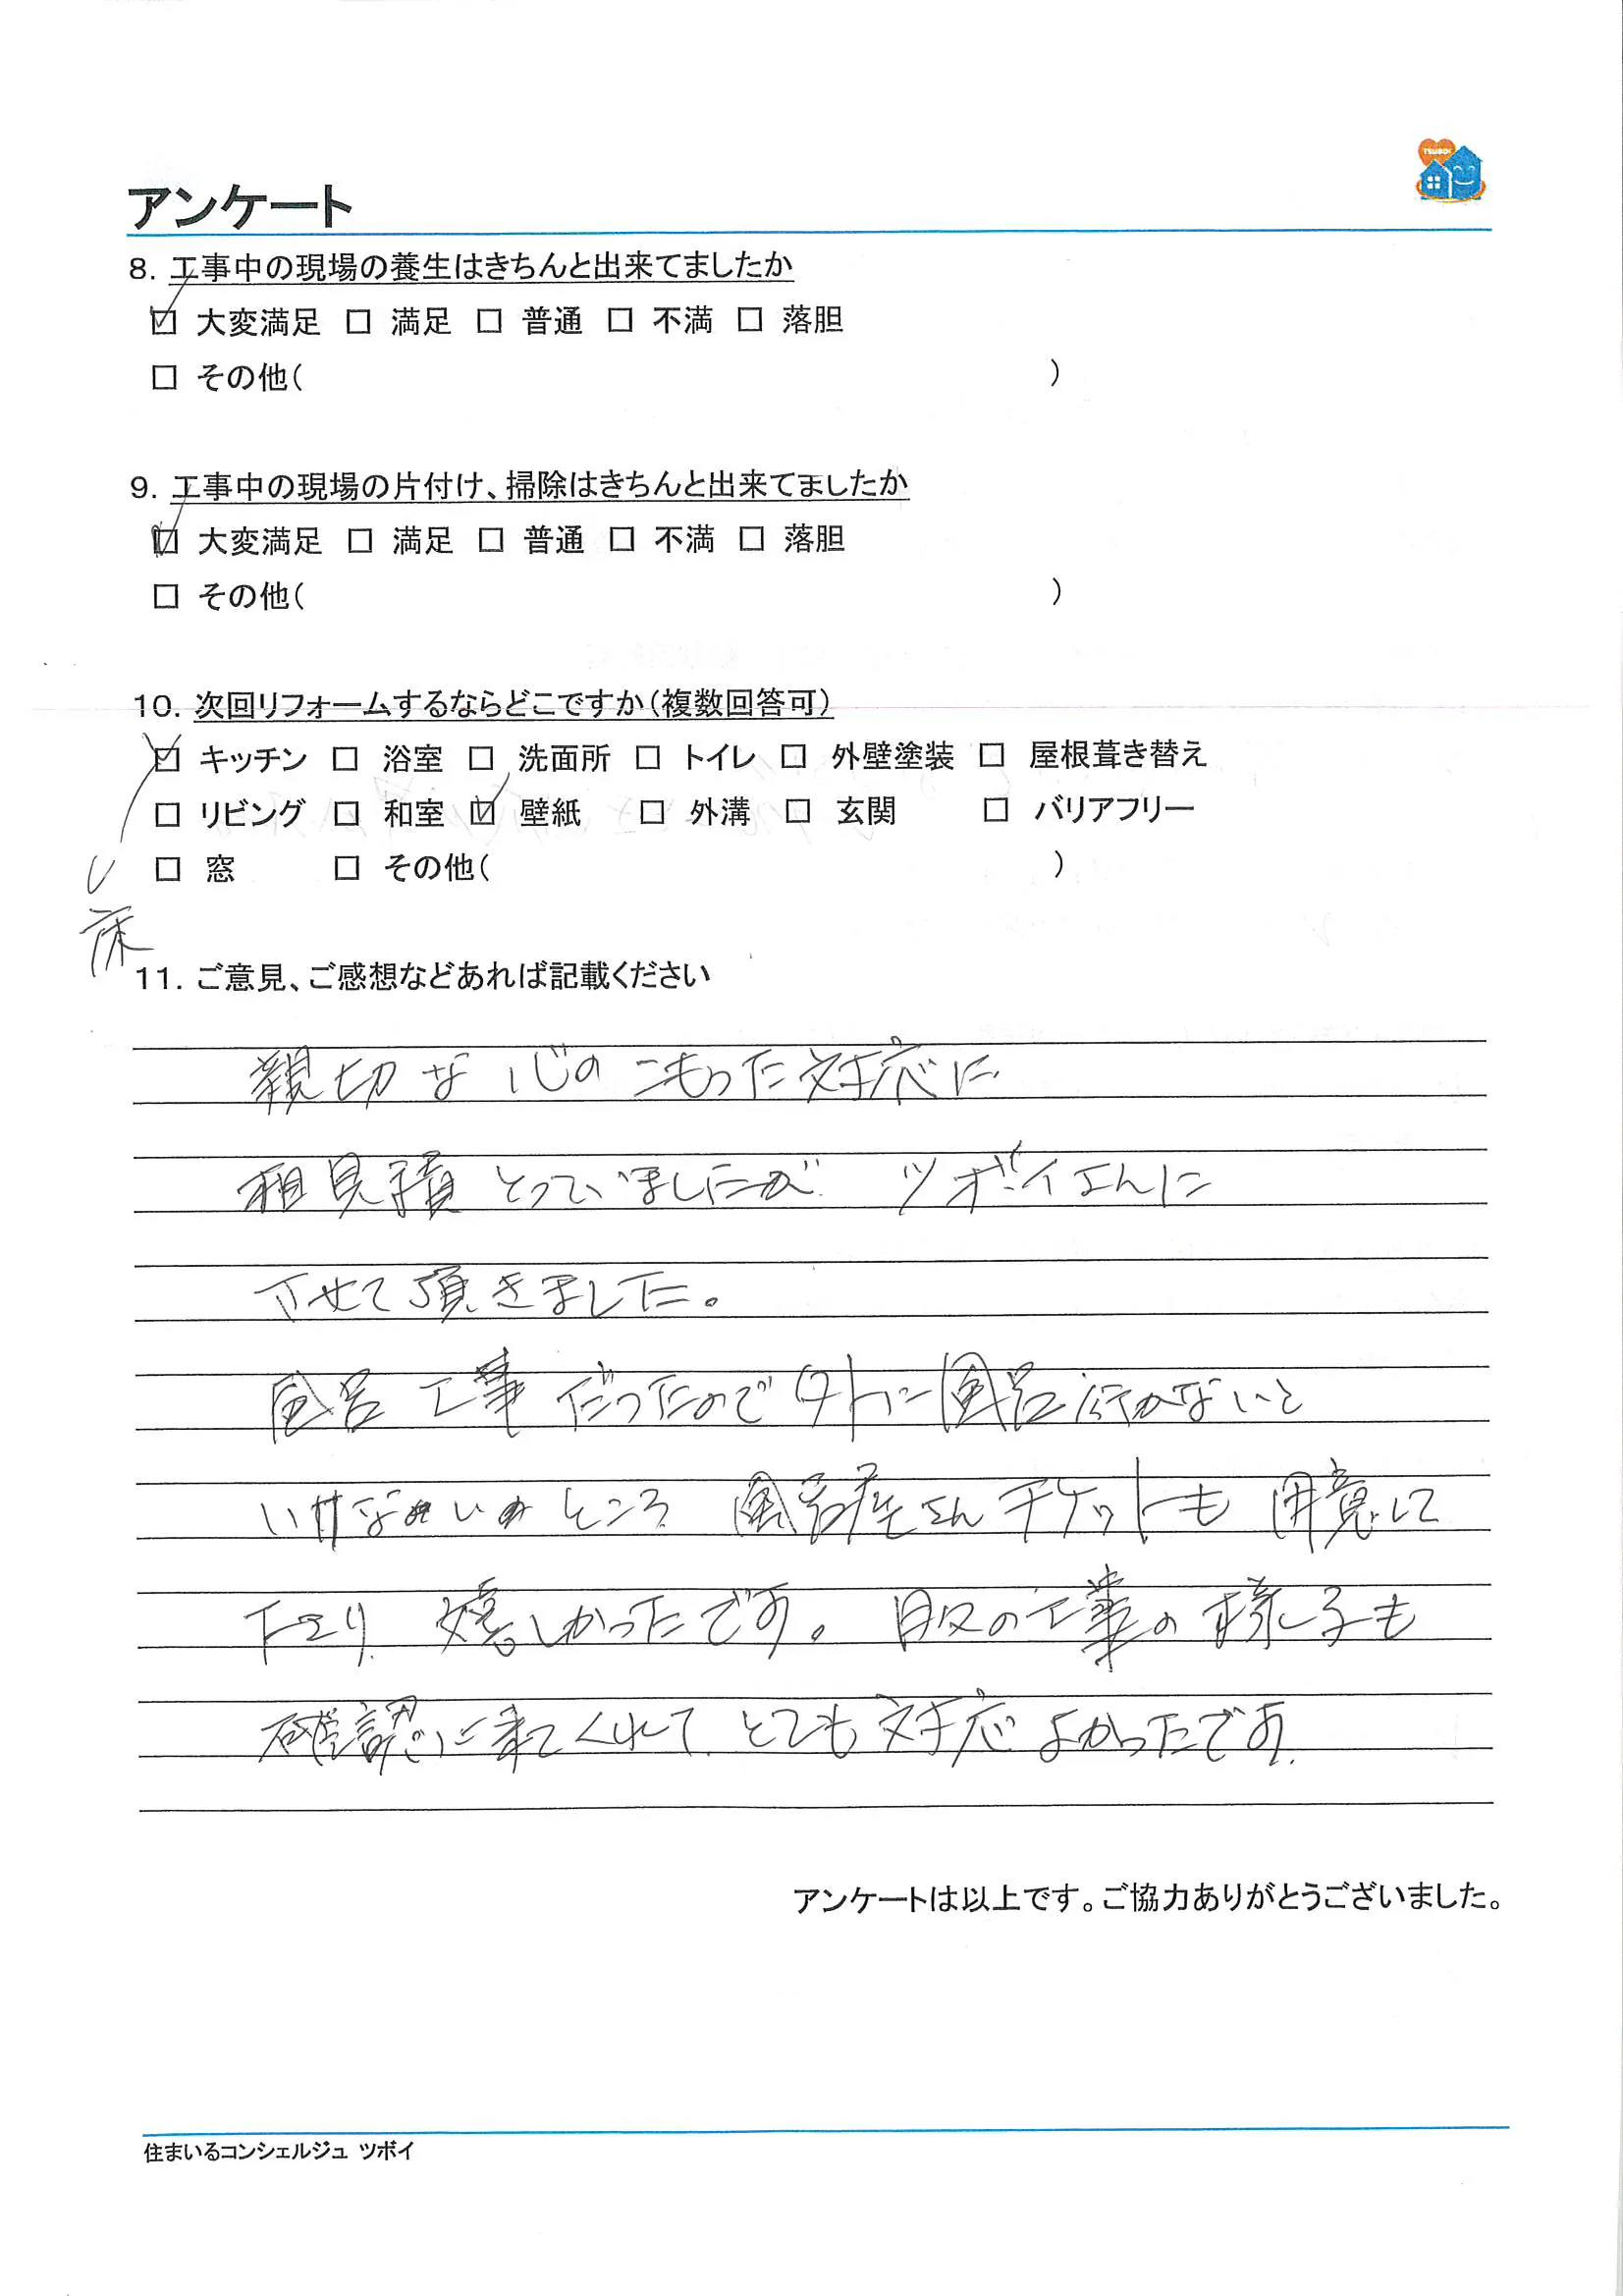 TSUBOI
アンケート
8. 工事中の現場の養生はきちんと出来てましたか
☑ 大変満足 □ 満足 □ 普通 □ 不満 □ 落胆
□ その他( )
9. 工事中の現場の片付け、掃除はきちんと出来てましたか
☑ 大変満足 □ 満足 □ 普通 □ 不満 □ 落胆
□ その他( )
10. 次回リフォームするならどこですか(複数回答可)
☑ キッチン □ 浴室 □ 洗面所 □ トイレ □ 外壁塗装 □ 屋根葺き替え
□ リビング □ 和室 ☑ 壁紙 □ 外溝 □ 玄関 □ バリアフリー
□ 窓 □ その他( )
床
11. ご意見、ご感想などあれば記載ください
親切な心のこもった対応に
相見積とっていましたが ツボイさんに
させて頂きました。
風呂工事だったので外に風呂行かないと
いけないところ 風呂屋さんチケットも用意して
下さり 嬉しかったです。日々の工事の様子も
確認に来てくれて とても対応よかったです。
アンケートは以上です。ご協力ありがとうございました。
住まいるコンシェルジュ ツボイ